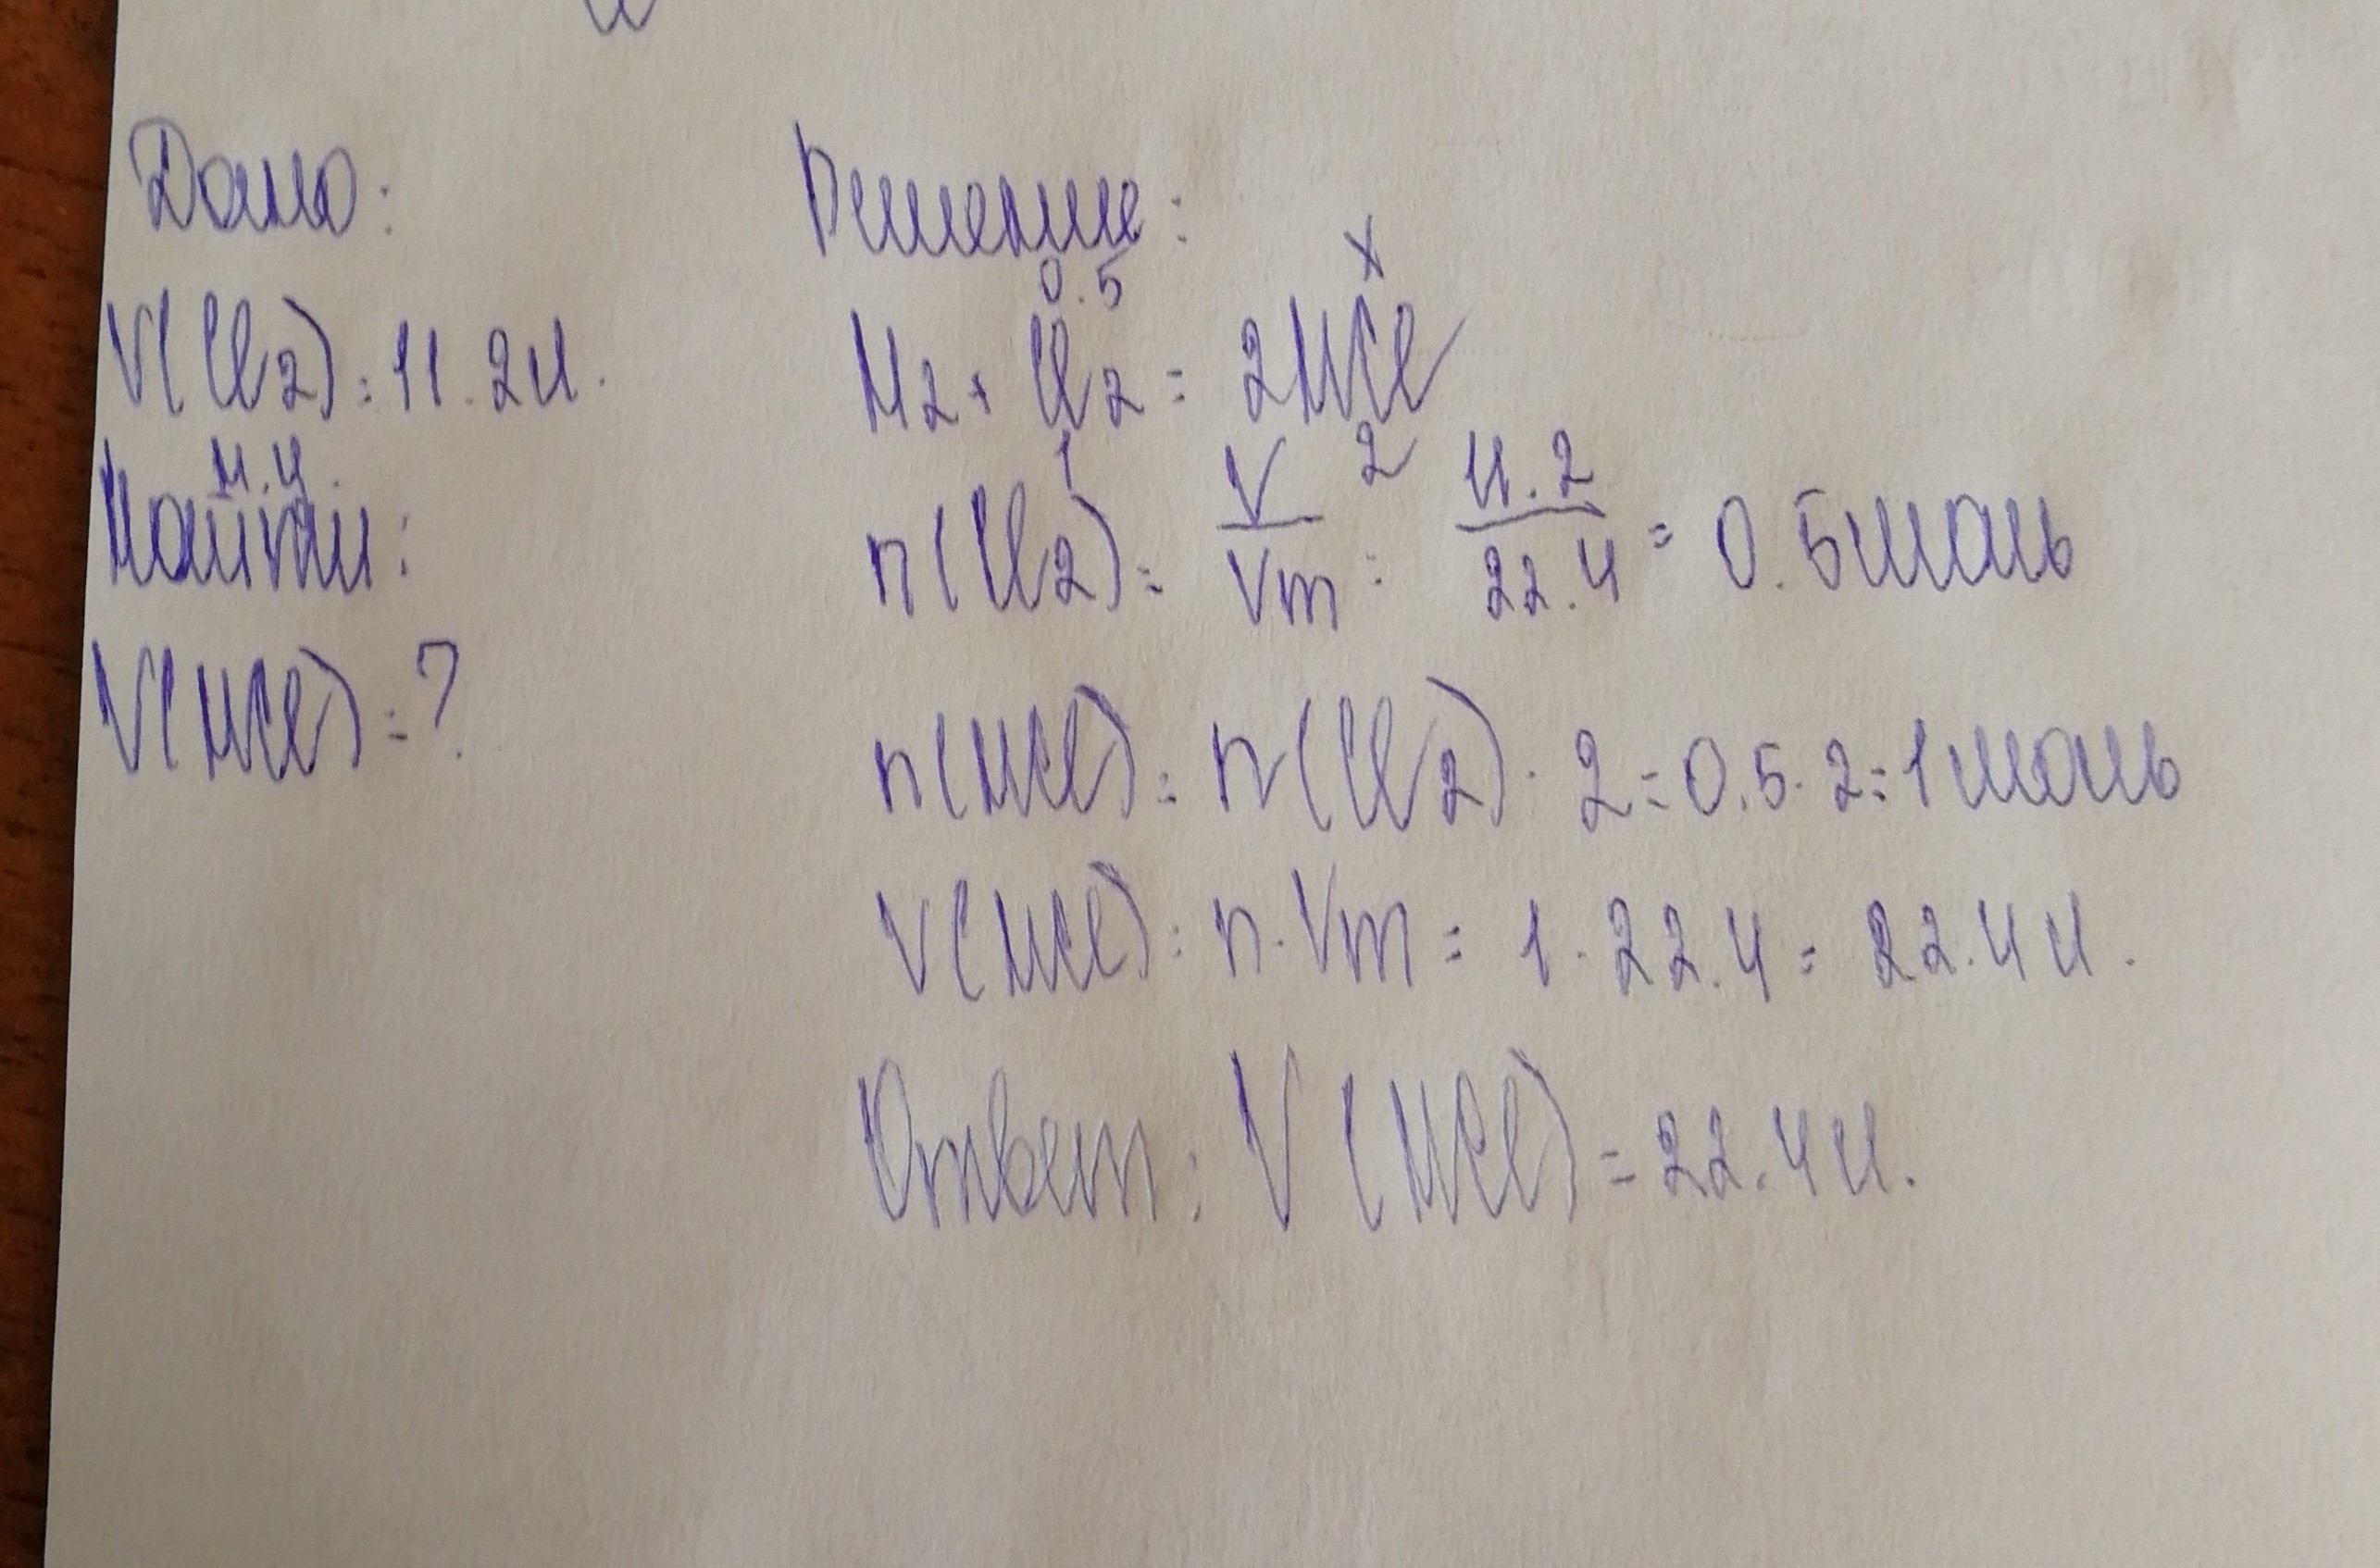 Дано:
V(Cl2) = 11.2л.
н.у.
Найти:
V(HCl) = ?
Решение:
0.5 x
H2 + Cl2 = 2HCl
1 2
n(Cl2) = V/Vm = 11.2/22.4 = 0.5моль
n(HCl) = n(Cl2) · 2 = 0.5 · 2 = 1моль
V(HCl) = n · Vm = 1 · 22.4 = 22.4л.
Ответ: V(HCl) = 22.4л.